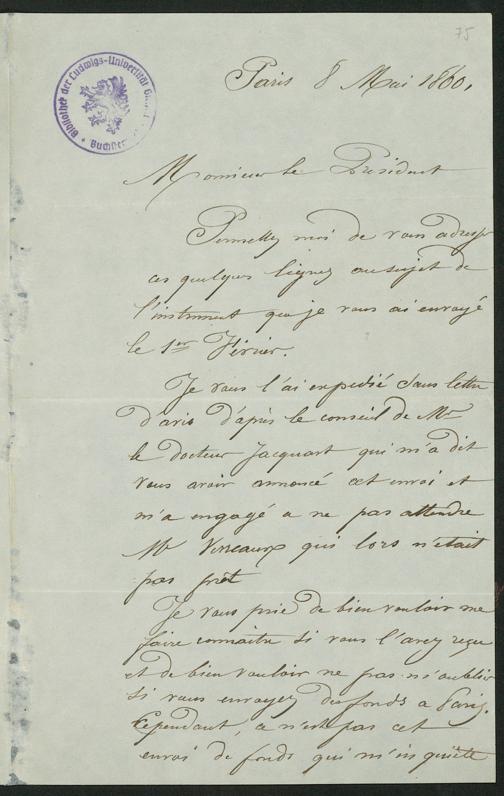 75
Bibliothek der Ludwigs-Universität
Paris 8 Mai 1860,
Monsieur le Président
Permettez moi de vous adresser
ces quelques lignes au sujet de
l'instrument que je vous ai envoyé
le 1er Février.
Je vous l'ai expedié sans lettre
d'avis d'après le conseil de Mr
le docteur Jacquart qui m'a dit
vous avoir annoncé cet envoi et
m'a engagé a ne pas attendre
Mr Verreaux qui lors n'était
pas prêt
Je vous prie de bien vouloir me
faire connaitre si vous l'avez reçu
et de bien vouloir ne pas m'oublier
si vous envoyez des fonds a Paris.
Cependant, ce n'est pas cet
envoi de fonds qui m'inquiète